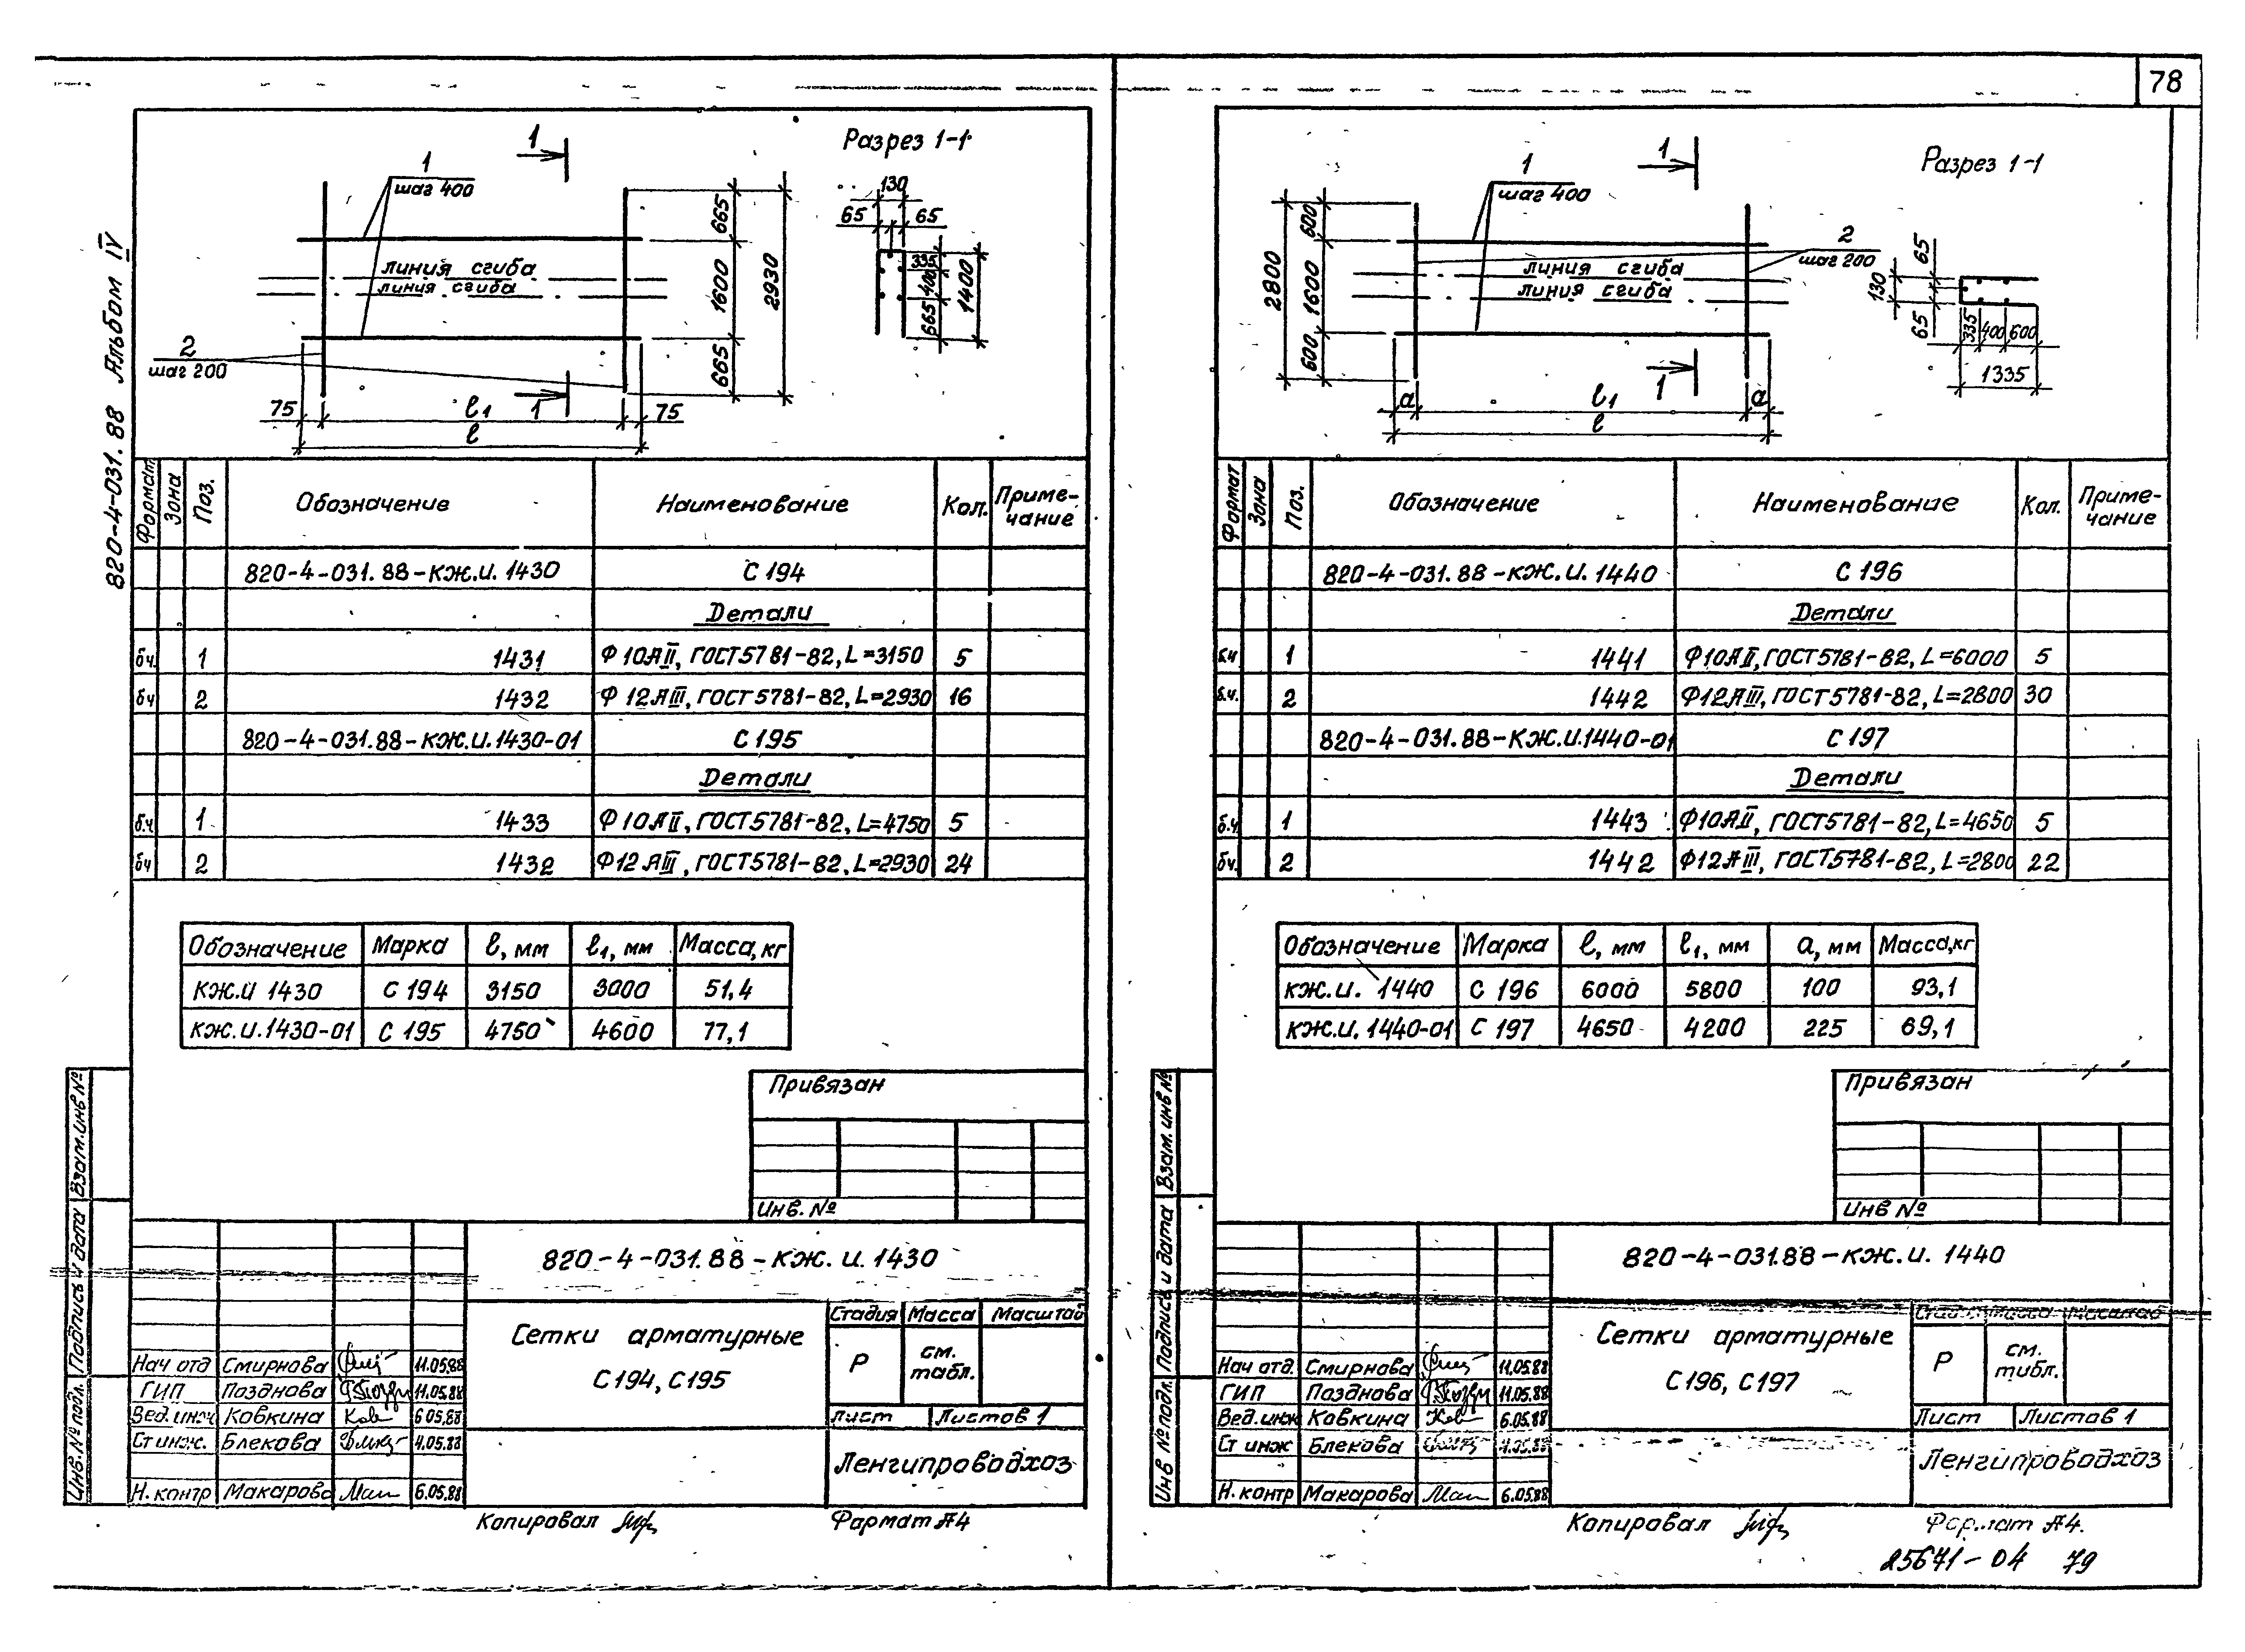 78
820-4-031.88 Альбом IV
1
1
шаг 400
линия сгиба
линия сгиба
2
шаг 200
1
75
l1
75
l
665
1600
665
2930
Разрез 1-1
130
65
65
335
400
665
1400
Формат
Зона
Поз.
Обозначение
Наименование
Кол.
Приме-
чание
820-4-031.88-КЖ.И.1430
С 194
Детали
бч.
1
1431
Ф 10АII, ГОСТ5781-82, L=3150
5
бч
2
1432
Ф 12АIII, ГОСТ5781-82, L=2930
16
820-4-031.88-КЖ.И.1430-01
С 195
Детали
б.ч.
1
1433
Ф 10АII, ГОСТ5781-82, L=4750
5
бч
2
1432
Ф12АIII, ГОСТ5781-82, L=2930
24
Обозначение Марка l, мм l1, мм Масса, кг
КЖ.И 1430 С 194 3150 3000 51,4
КЖ.И.1430-01 С 195 4750 4600 77,1
Привязан
Инв. №
Взам.инв №
Подпись и дата
Инв.№ подл.
820-4-031.88-КЖ.И.1430
Сетки арматурные
С194, С195
Стадия Масса Масштаб
Р
см.
табл.
Лист
Листов 1
Ленгипроводхоз
Нач отд Смирнова 11.05.88
ГИП Позднова 11.05.88
Вед.инж Ковкина 6 05.88
Ст инж. Блекова 4.05.88
Н. контр Макарова 6.05.88
Копировал
Формат А4
1
1
шаг 400
2
шаг 200
линия сгиба
линия сгиба
1
600
1600
600
2800
а
l1
а
l
Разрез 1-1
65
130
65
335
400
600
1335
Формат
Зона
Поз.
Обозначение
Наименование
Кол.
Приме-
чание
820-4-031.88-КЖ.И.1440
С 196
Детали
б.ч
1
1441
Ф10АII, ГОСТ5781-82, L=6000
5
б.ч.
2
1442
Ф12АIII, ГОСТ5781-82, L=2800
30
820-4-031.88-КЖ.И.1440-01
С 197
Детали
б.ч.
1
1443
Ф10АII, ГОСТ5781-82, L=4650
5
бч.
2
1442
Ф12АIII, ГОСТ5781-82, L=2800
22
Обозначение Марка l, мм l1, мм а, мм Масса,кг
КЖ.И. 1440 С 196 6000 5800 100 93,1
КЖ.И. 1440-01 С 197 4650 4200 225 69,1
Привязан
Инв №
Взам.инв №
Подпись и дата
Инв № подл.
820-4-031.88-КЖ.И. 1440
Сетки арматурные
С196, С197
Р
см.
табл.
Лист
Листов 1
Ленгипроводхоз
Нач отд. Смирнова 11.05.88
ГИП Позднова 11.05.88
Вед.инж Ковкина 6.05.88
Ст инж Блекова 4.05.88
Н. контр Макарова 6.05.88
Копировал
Формат А4.
25671-04 79